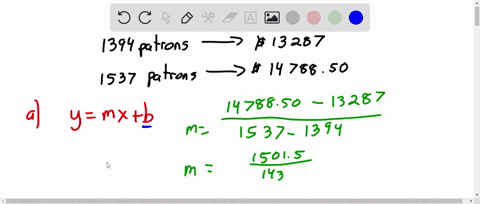 1394 patrons → $ 13287
1537 patrons → $ 14788.50
a) y = mx + b
m = 14788.50 - 13287
1537 - 1394
m = 1501.5
143